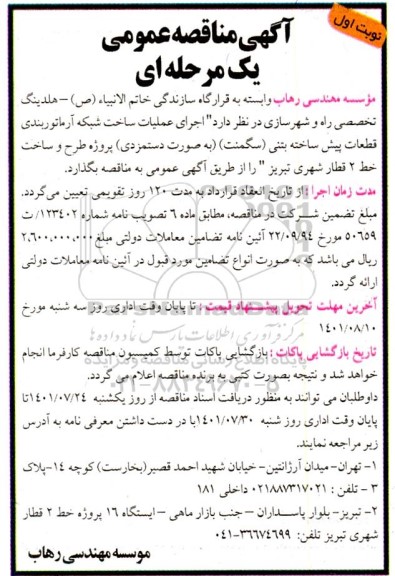 نوبت اول
آگهی مناقصه عمومی
یک مرحله ای
مؤسسه مهندسی رهاب وابسته به قرارگاه سازندگی خاتم الانبیاء (ص) – هلدینگ
تخصصی راه و شهرسازی در نظر دارد" اجرای عملیات ساخت شبکه آرماتوربندی
قطعات پیش ساخته بتنی (سگمنت) (به صورت دستمزدی) پروژه طرح و ساخت
خط ۲ قطار شهری تبریز " را از طریق آگهی عمومی به مناقصه بگذارد.
مدت زمان اجرا : از تاریخ انعقاد قرارداد به مدت ۱۲۰ روز تقویمی تعیین می‌گردد.
مبلغ تضمین شـــرکت در مناقصه، مطابق ماده ۶ تصویب نامه شماره ۱۲۳۴۰۲/ ت
۵۰۶۵۹ مورخ ۲۲/۰۹/۹۴ آئین نامه تضامین معاملات دولتی مبلغ ۲,۶۰۰,۰۰۰,۰۰۰
ریال می باشد که به صورت انواع تضامین مورد قبول در آئین نامه معاملات دولتی
ارائه گردد.
آخرین مهلت تحویل پیشــنهاد قیمت : تا پایان وقت اداری روز سه شنبه مورخ
۱۴۰۱/۰۸/۱۰
تاریخ بازگشایی پاکات : بازگشایی پاکات توسط کمیسیون مناقصه کارفرما انجام
خواهد شد و نتیجه بصورت کتبی به برنده مناقصه اعلام می گردد.
داوطلبان می توانند به منظور دریافت اسناد مناقصه از روز یکشنبه ۱۴۰۱/۰۷/۲۴تا
پایان وقت اداری روز شنبه ۱۴۰۱/۰۷/۳۰با در دست داشتن معرفی نامه به آدرس
زیر مراجعه نمایند.
۱- تهران- میدان آرژانتین- خیابان شهید احمد قصیر(بخارست) کوچه ۱۴-پلاک
۳ - تلفن : ۰۲۱۸۸۷۳۱۷۰۲۱ داخلی ۱۸۱
۲- تبریز- بلوار پاســداران – جنب بازار ماهی – ایستگاه ۱۶ پروژه خط ۲ قطار
شهری تبریز تلفن: ۳۶۶۷۴۶۹۹-۰۴۱
موسسه مهندسی رهاب